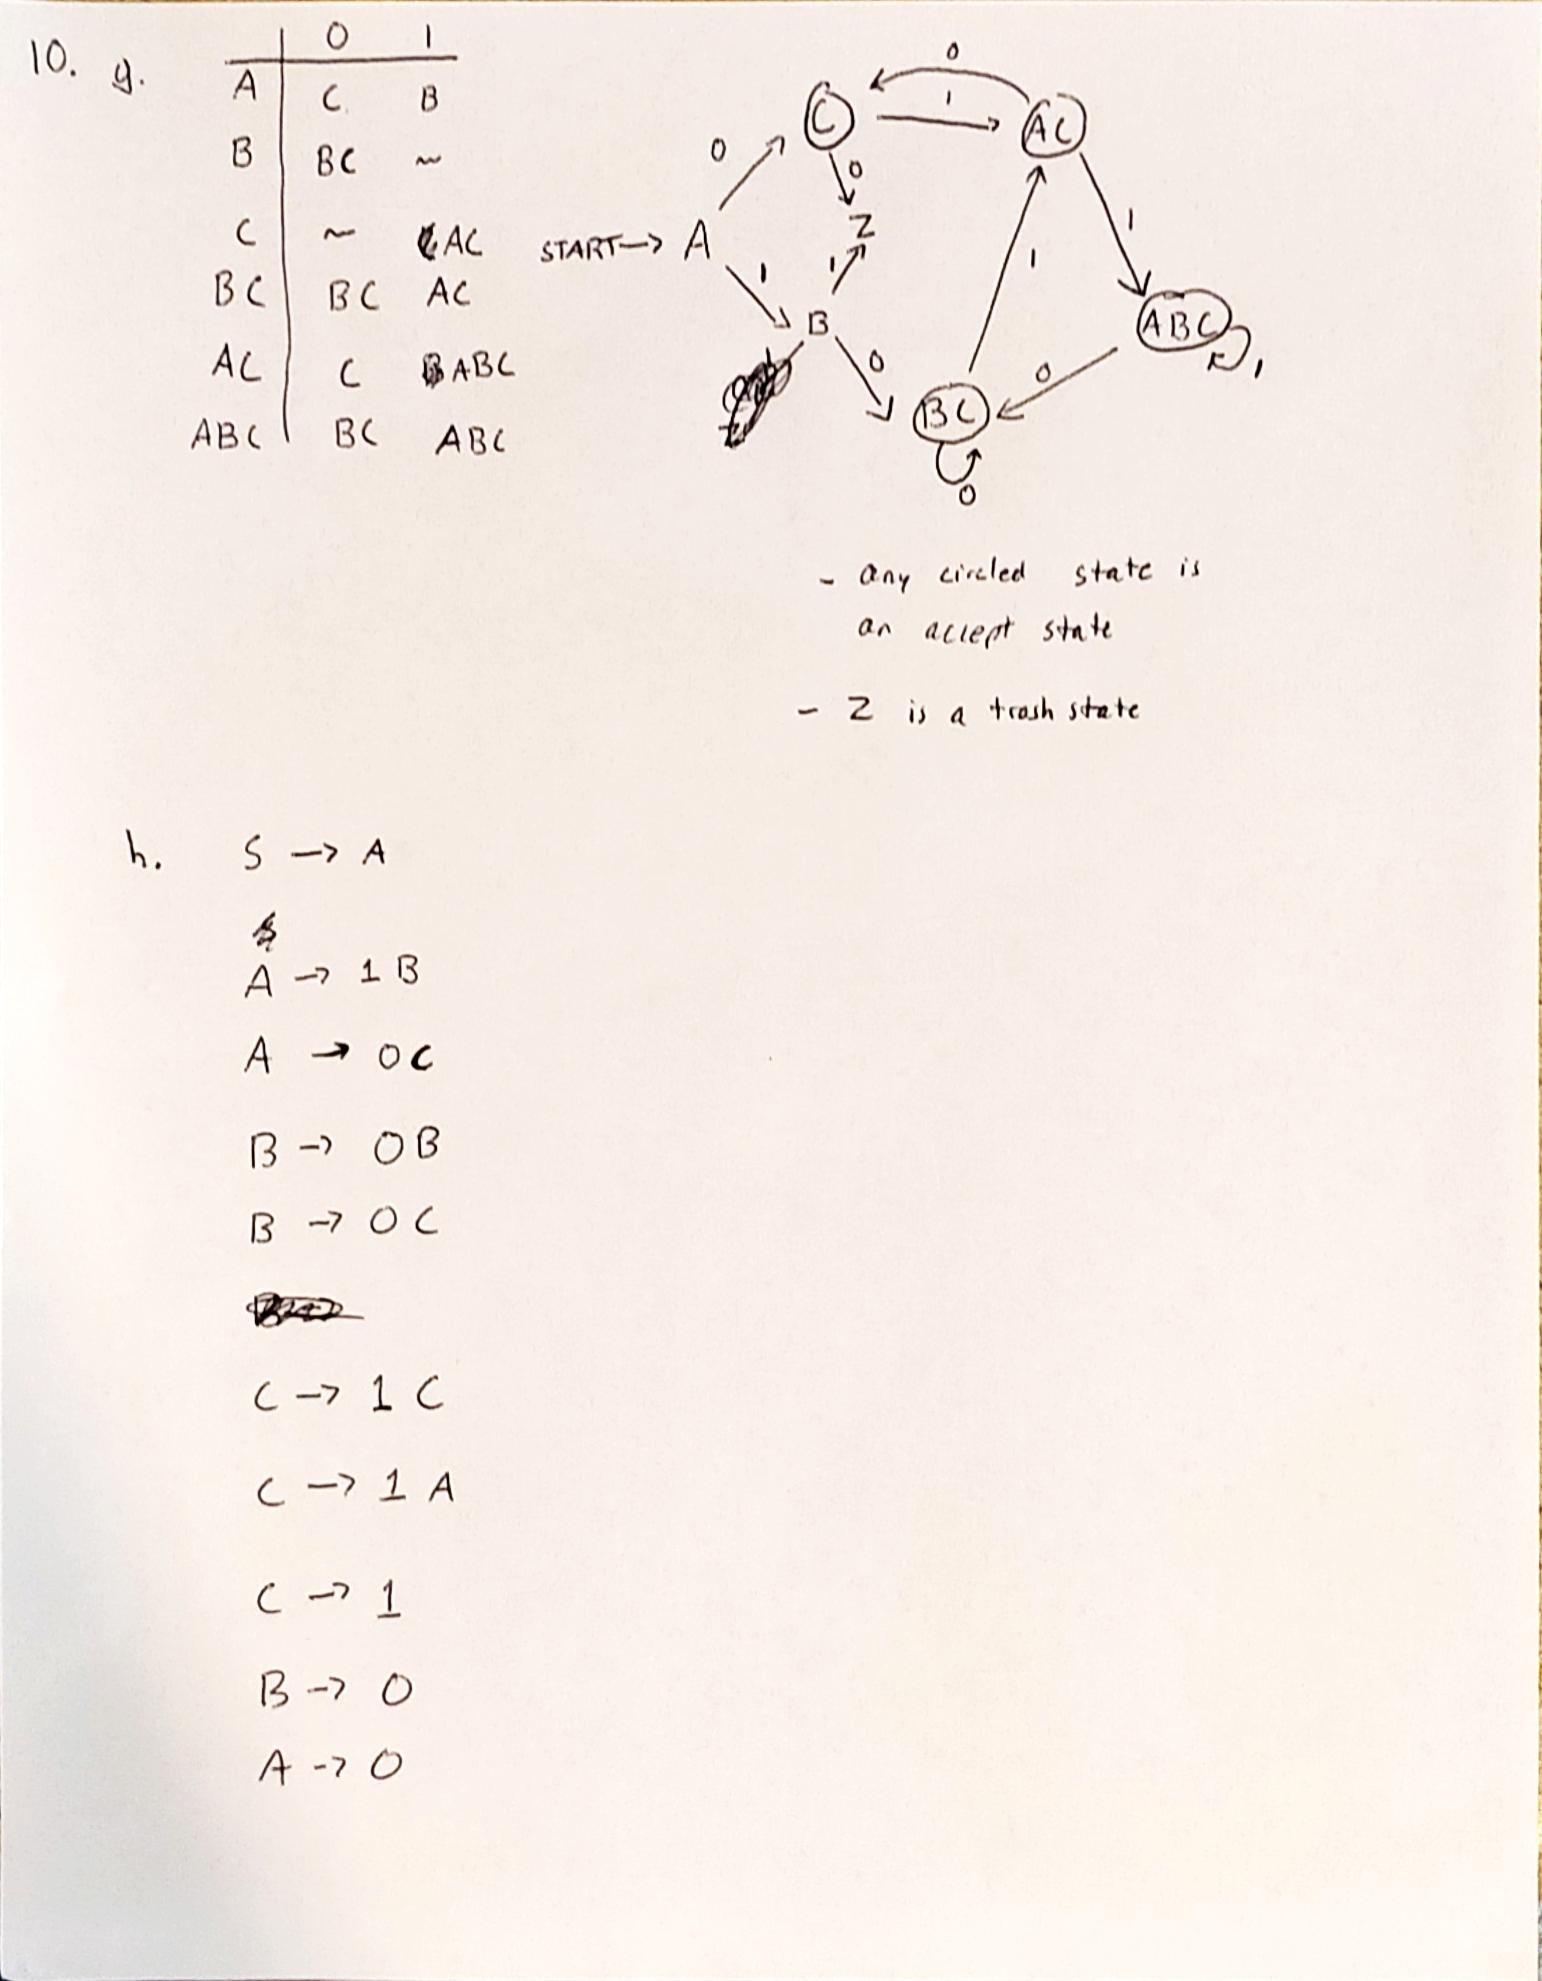 10. g.
0 1
A C B
B BC ~
C ~ AC
BC BC AC
AC C ABC
ABC BC ABC
0
C 1 AC
0 0
Z 1
START→ A
1 1 1
B ABC
0 0 1
BC
0
- any circled state is
an accept state
- Z is a trash state
h. S → A
A → 1 B
A → 0C
B → 0B
B → 0C
C → 1 C
C → 1 A
C → 1
B → 0
A → 0